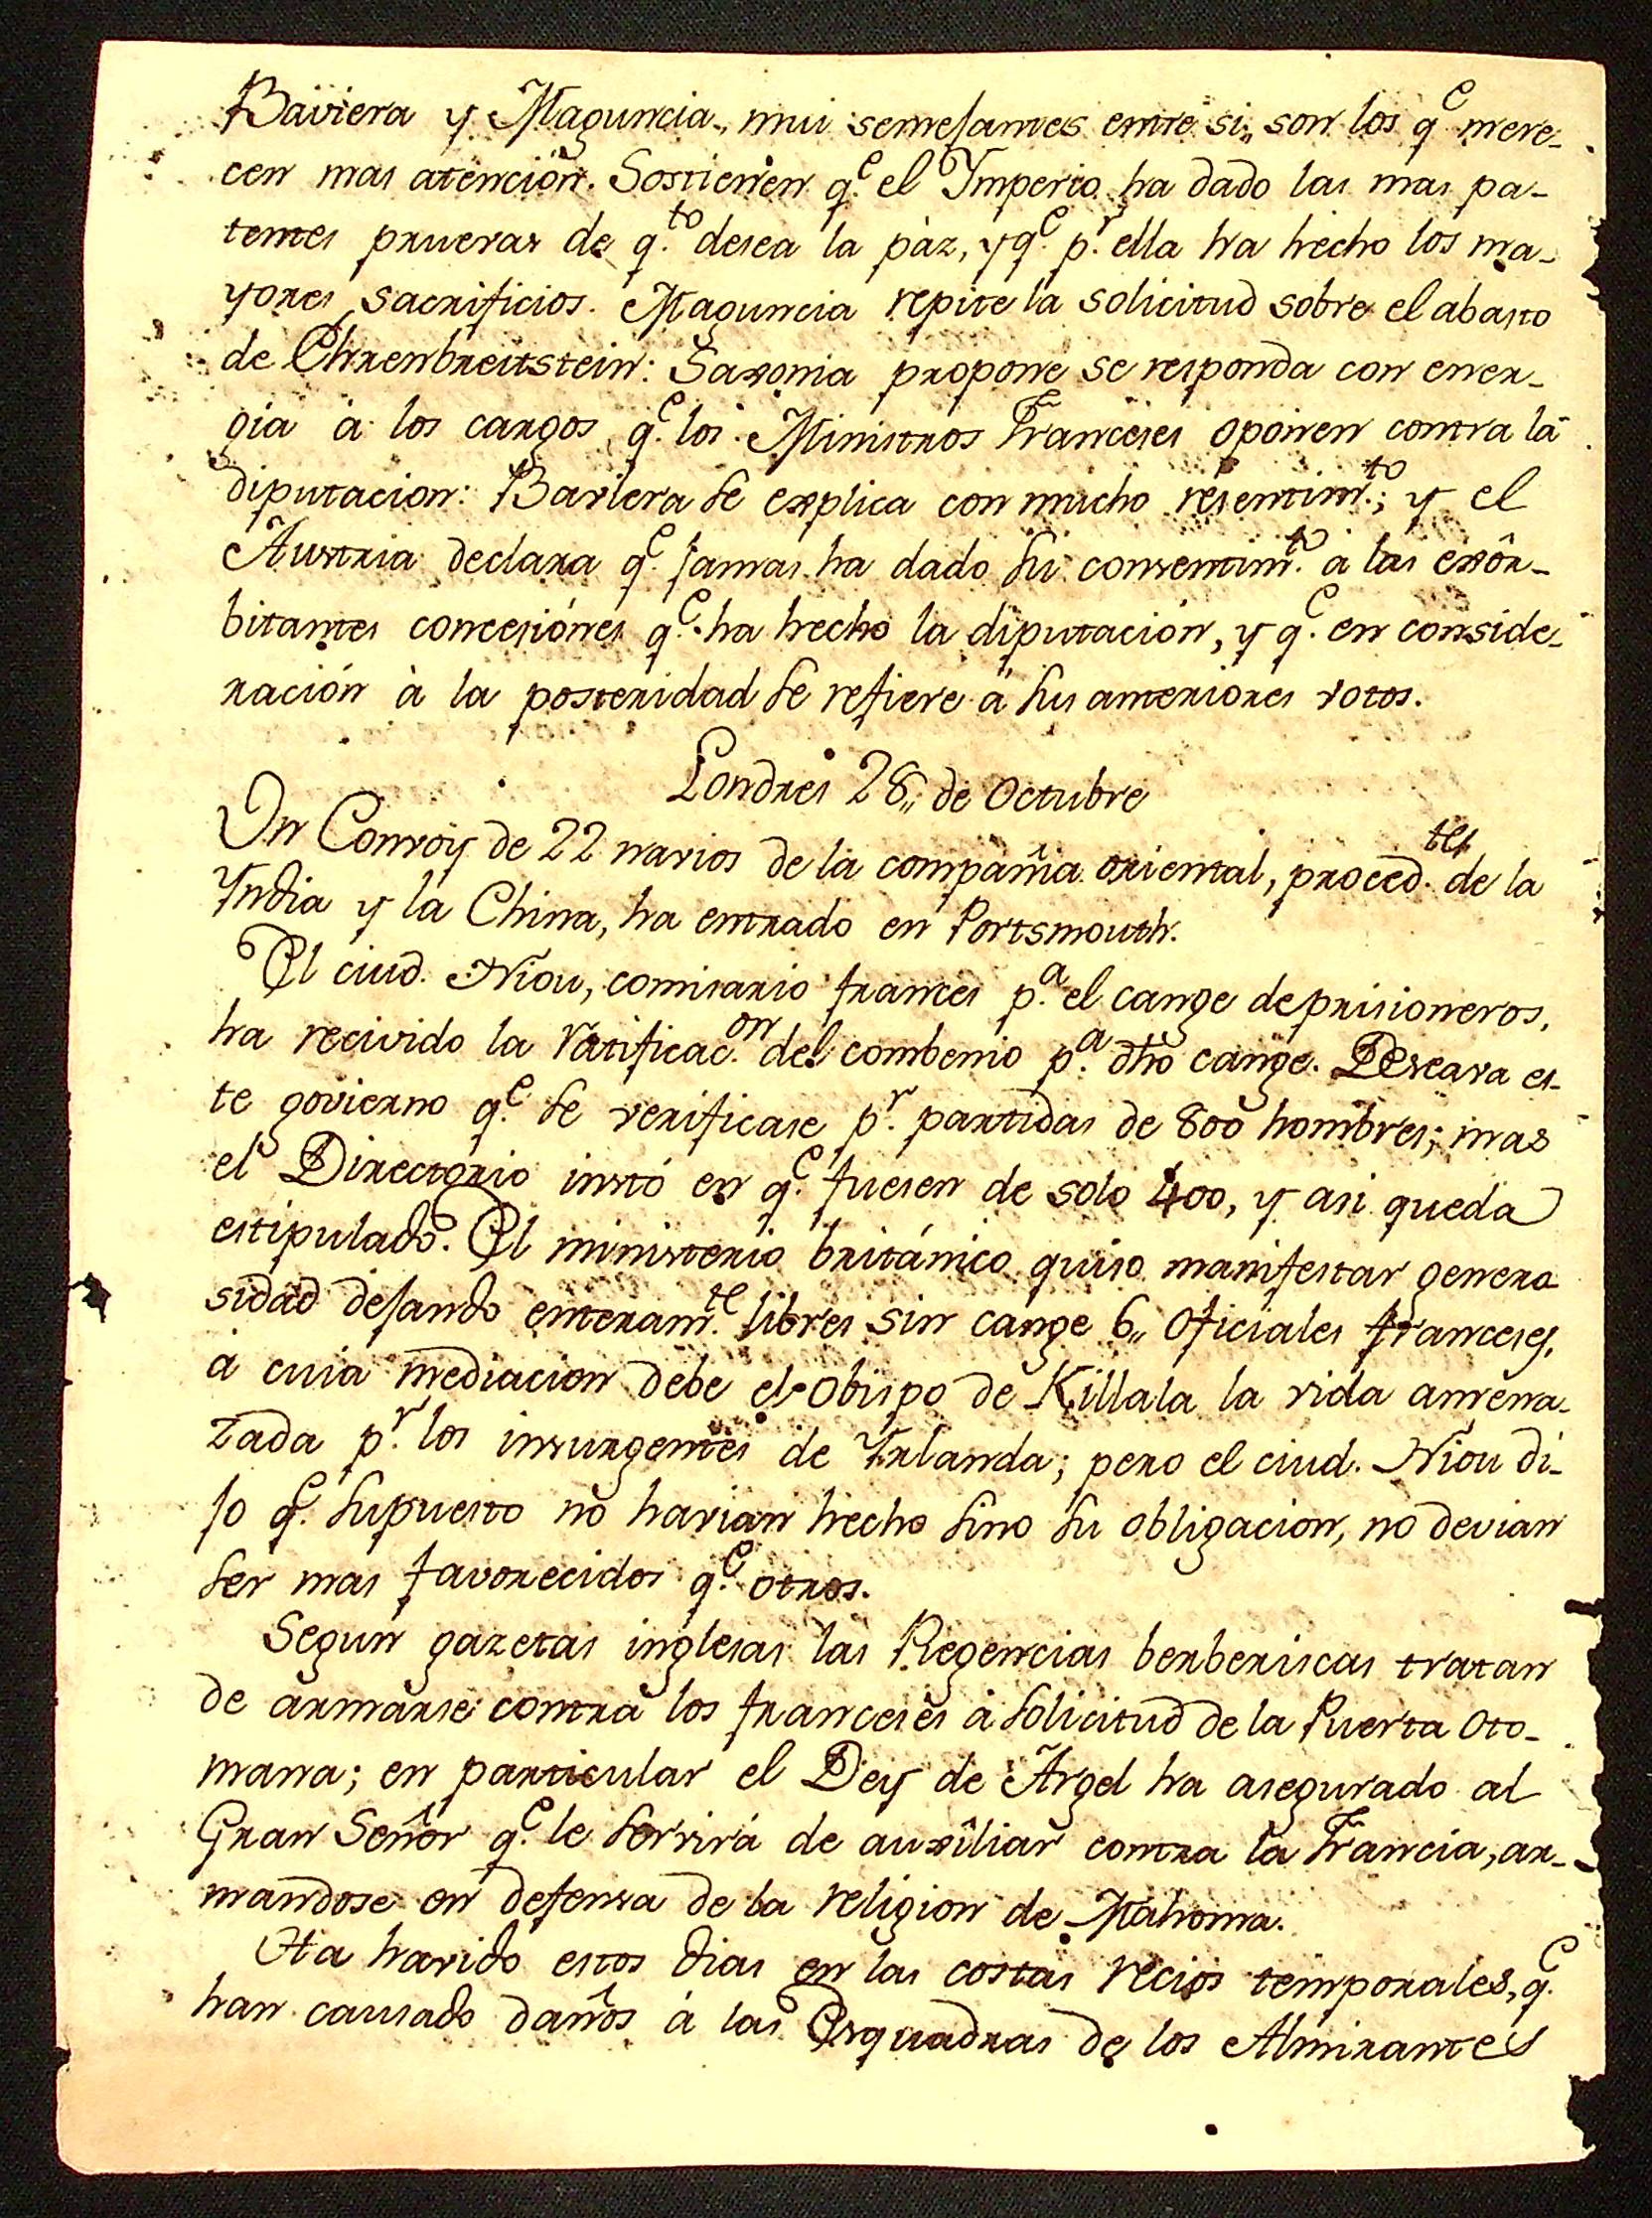 Baviera y Maguncia, mui semejantes entre si,, son los q.e mere-
cen mas atención. Sostienen q.e el Ymperio ha dado las mas pa-
tentes pruevas de q.to desea la pàz, y q.e p.r ella ha hecho los ma-
yores sacrificios. Maguncia repite la solicitud sobre el abasto
de Ehrenbreitstein: Saxonia propone se responda con ener-
gia à los cargos q.e los Ministros Franceses oponen contra la
diputacion: Baviera se explica con mucho resentim.to; y el
Austria declara q.e jamas ha dado su consentim.to à las exôr-
bitantes concesiónes q.e ha hecho la diputación, y q.e en conside-
ración à la posteridad se refiere à sus anteriores votos.
Londres 28,, de Octubre
Un Convoy de 22 navios de la compañia oriental, proced.tes de la
Yndia y la China, ha entrado en Portsmouth.
El ciud. Niou, comisario frances p.a el cange de prisioneros,
ha recivido la ratificac.on del combenio p.a dho cange. Deseava es-
te govierno q.e se verificase p.r partidas de 800 hombres; mas
el Directorio instó en q.e fuesen de solo 400, y asi queda
estipulado. El ministerio británico quiso manifestar genero
sidad dejando enteram.te libres sin cange 6,, Oficiales franceses,
à cuia mediacion debe el Obispo de Killala la vida amena-
zada p.r los insurgentes de Yrlanda; pero el ciud. Niou di-
jo q.e supuesto no havian hecho sino su obligacion, no devian
ser mas favorecidos q.e otros.
Segun gazetas inglesas las Regencias berberiscas tratan
de armarse contra los franceses à solicitud de la Puerta Oto-
mana; en particular el Dey de Argel ha asegurado al
Gran Señor q.e le servirá de auxîliar contra la Francia, ar-
mandose en defensa de la religion de Mahoma.
Ha havido estos dias en las costas recios temporales, q.e
han causado daños à las Esquadras de los Almirantes